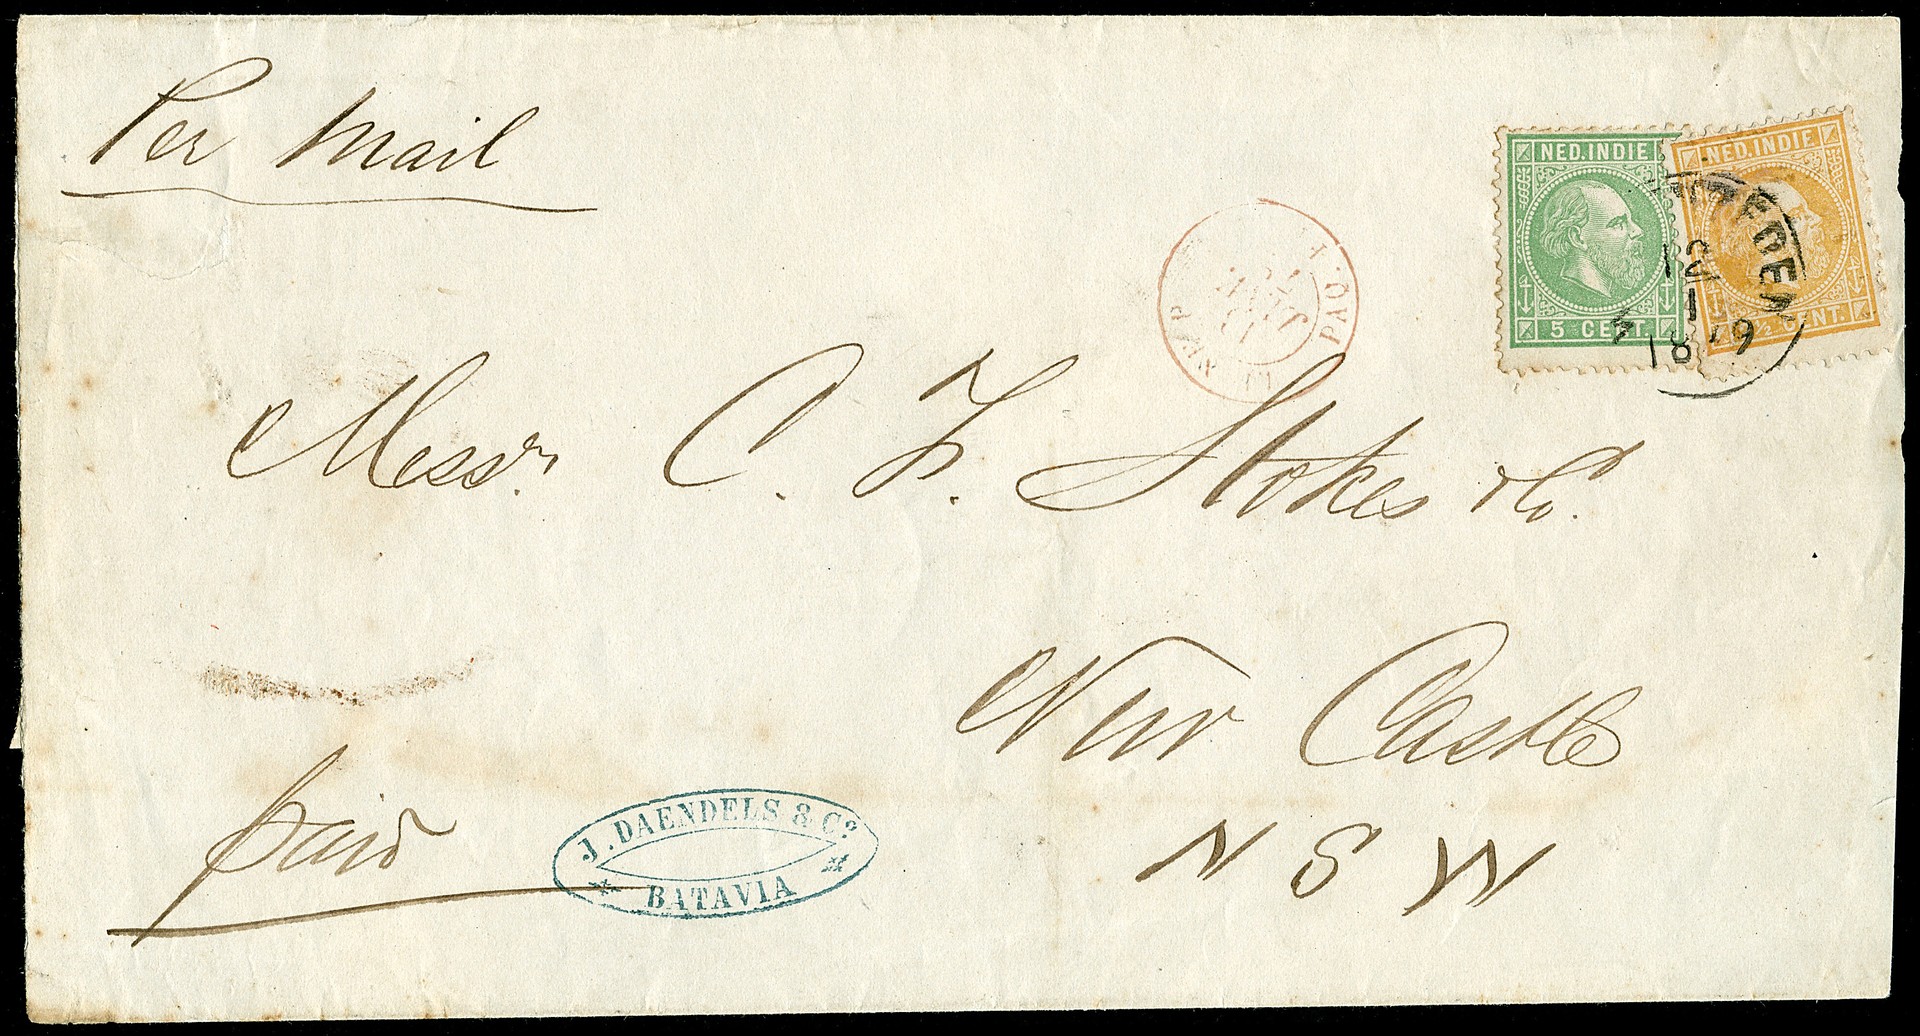 Per Mail
NED. INDIE
5 CENT.
NED. INDIE
½ CENT.
12
1
1879
Messrs C. F. Stokes & Co.
New Castle
N S W
paid
J. DAENDELS & Co.
BATAVIA